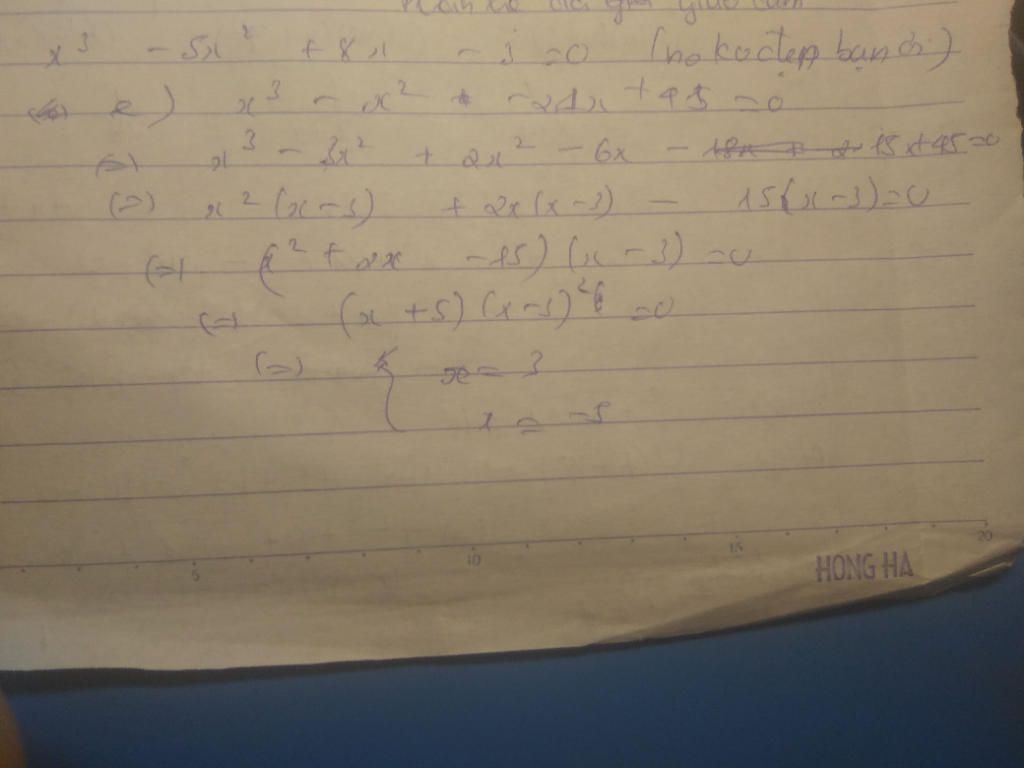 x³ - 5x² + 8x - 3 = 0 (no ko đẹp bạn ơi)
e) x³ - x² - 21x + 45 = 0
(=) x³ - 3x² + 2x² - 6x - 15x + 45 = 0
(=) x²(x-3) + 2x(x-3) - 15(x-3) = 0
(=) (x² + 2x - 15)(x - 3) = 0
(=) (x + 5)(x - 3)² = 0
(=) { x = 3
x = -5
5 10 15 20
HONG HA